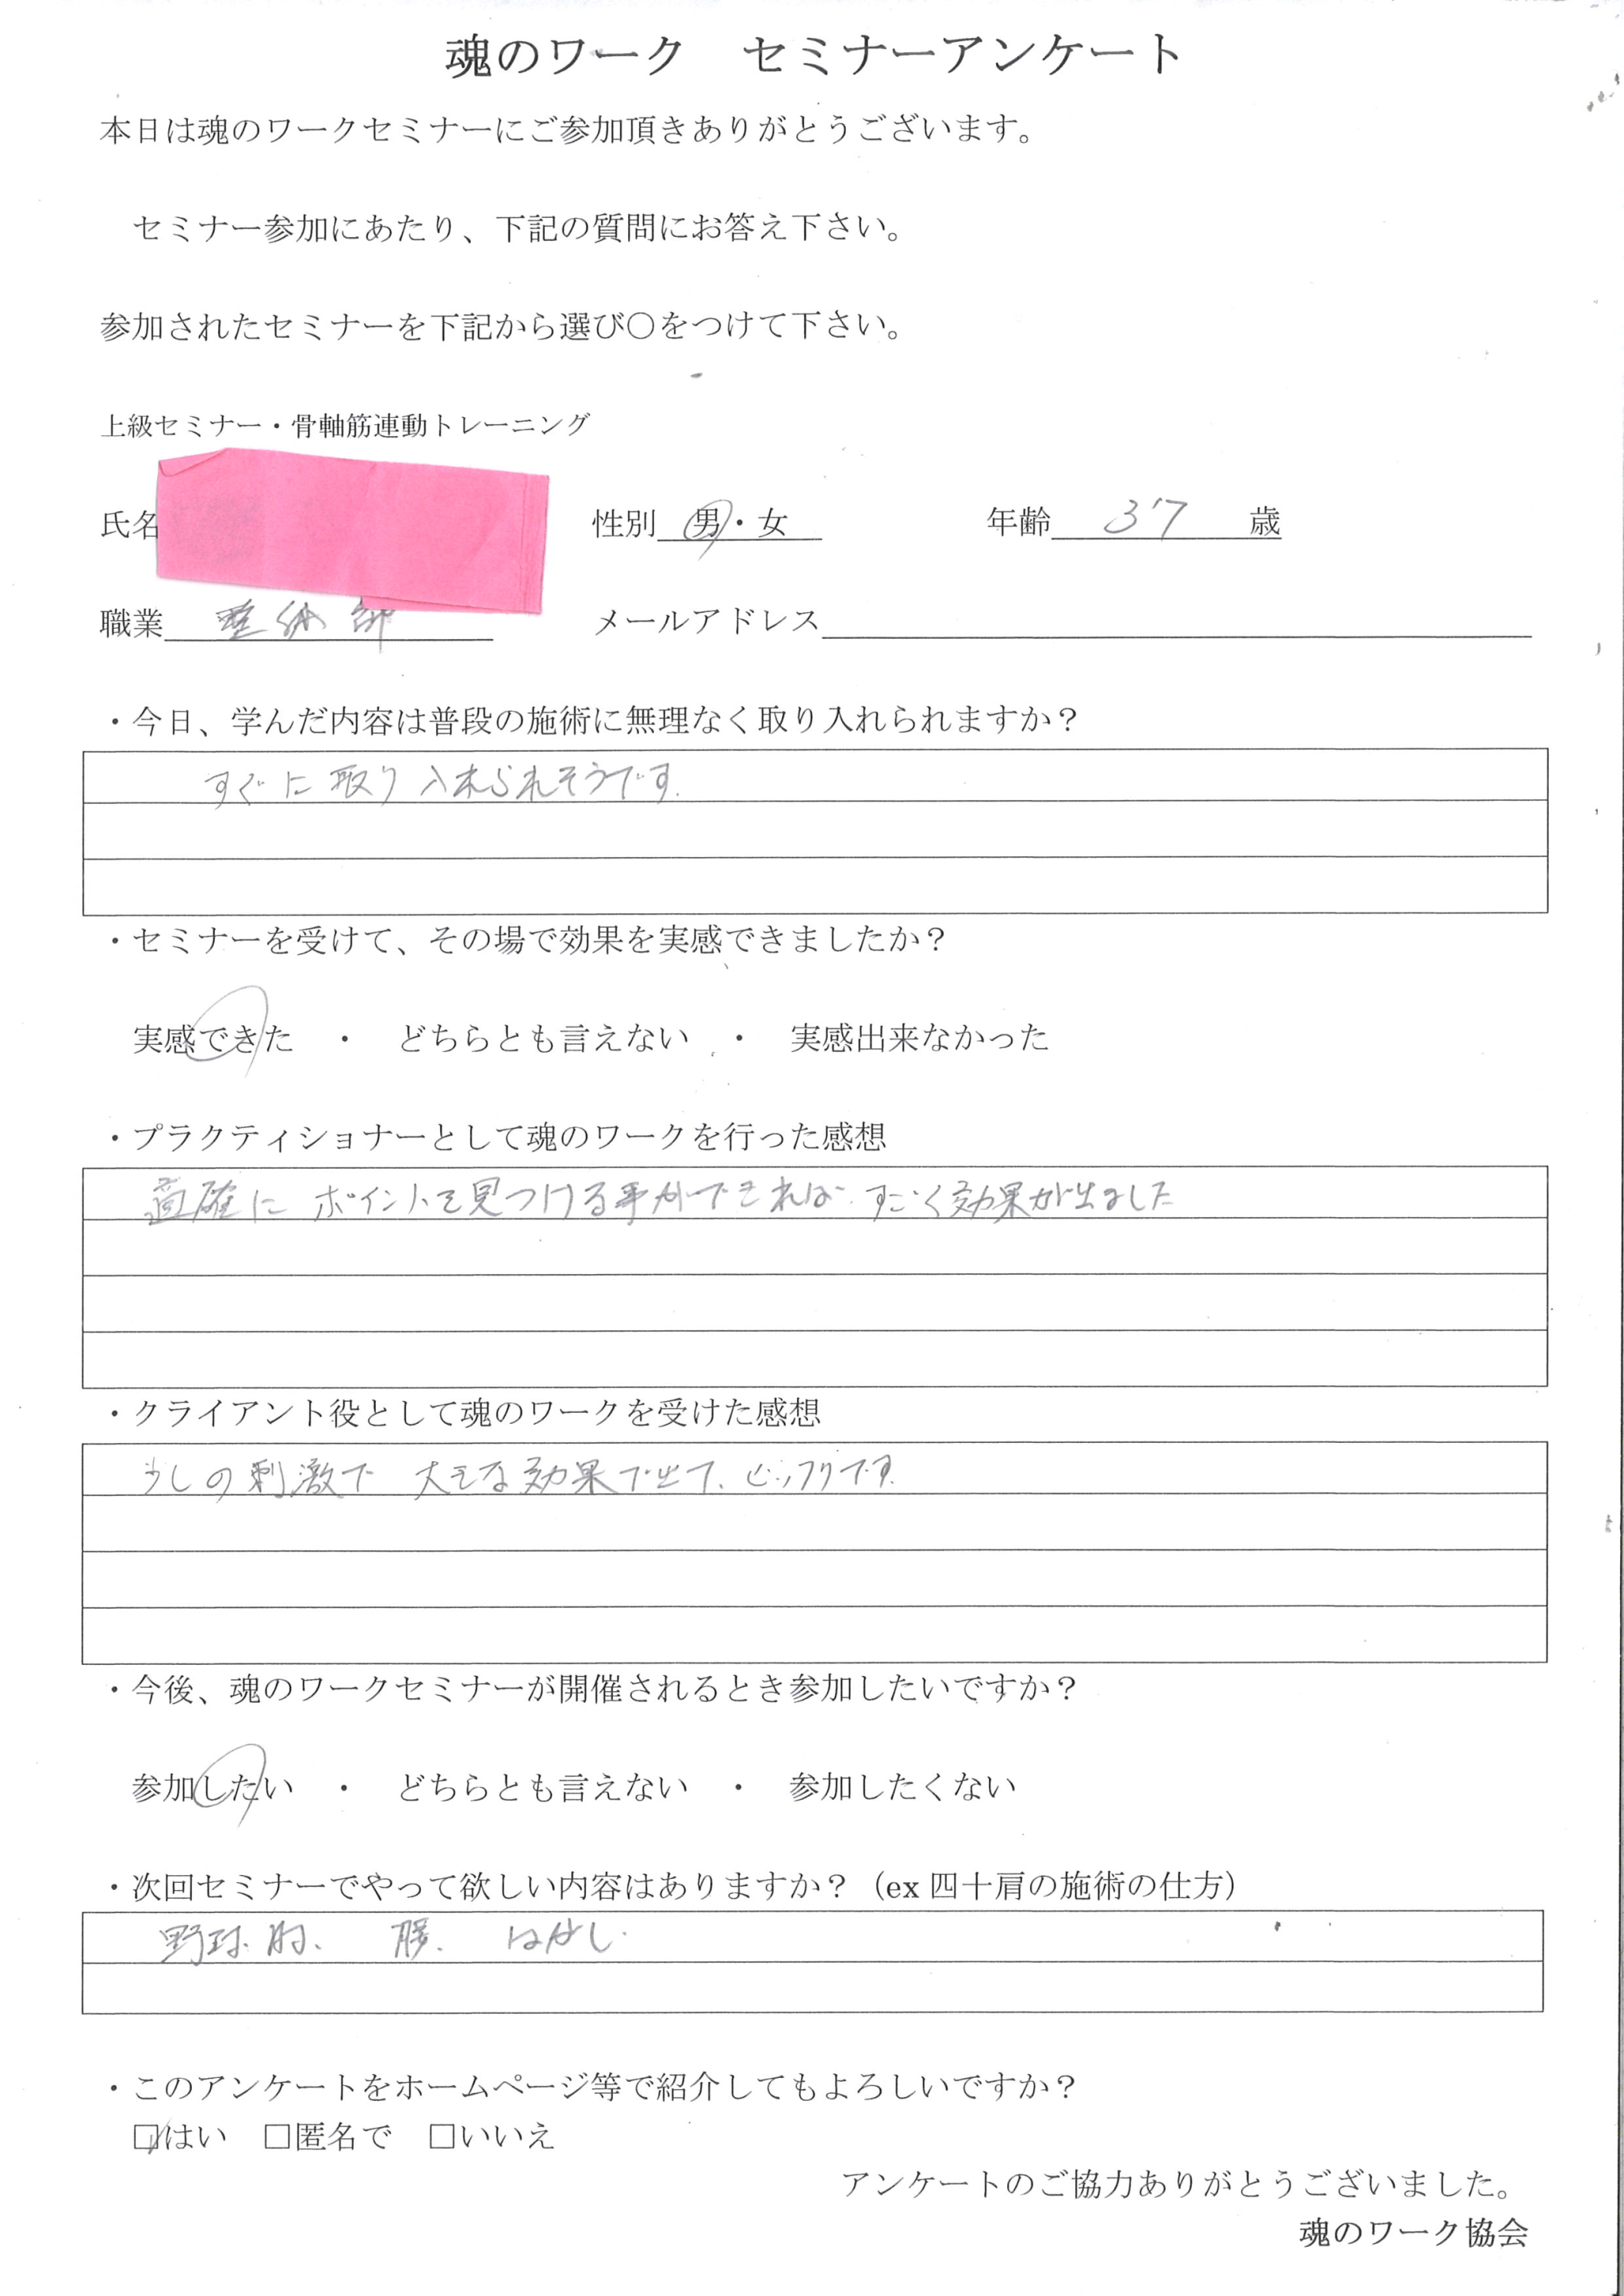 魂のワーク　セミナーアンケート
本日は魂のワークセミナーにご参加頂きありがとうございます。
セミナー参加にあたり、下記の質問にお答え下さい。
参加されたセミナーを下記から選び〇をつけて下さい。
上級セミナー・骨軸筋連動トレーニング
氏名 性別 男・女 年齢 37 歳
職業 整体師 メールアドレス
・今日、学んだ内容は普段の施術に無理なく取り入れられますか？
すぐに取り入れられそうです.
・セミナーを受けて、その場で効果を実感できましたか？
実感できた　・　どちらとも言えない　・　実感出来なかった
・プラクティショナーとして魂のワークを行った感想
適確に ポイントを見つける事ができれば すごく効果が出ました
・クライアント役として魂のワークを受けた感想
少しの刺激で 大きな効果で出て、ビックリです
・今後、魂のワークセミナーが開催されるとき参加したいですか？
参加したい　・　どちらとも言えない　・　参加したくない
・次回セミナーでやって欲しい内容はありますか？（ex 四十肩の施術の仕方）
野球肘、 腰、
・このアンケートをホームページ等で紹介してもよろしいですか？
☑はい　□匿名で　□いいえ
アンケートのご協力ありがとうございました。
魂のワーク協会